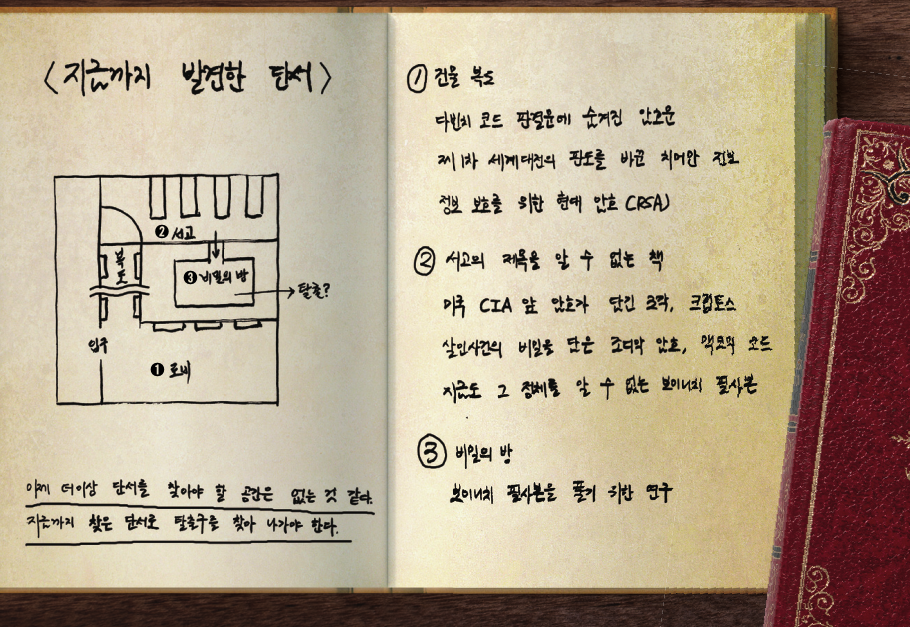 <지금까지 발견한 단서>
❷ 서고
복도
❸ 비밀의 방
탈출?
입구
❶ 로비
이제 더이상 단서를 찾아야 할 공간은 없는 것 같다.
지금까지 찾은 단서로 탈출구를 찾아 나가야 한다.
① 건물 복도
다빈치 코드 판결문에 숨겨진 암호문
제1차 세계대전의 판도를 바꾼 치머만 전보
정보 보호를 위한 현대 암호 (RSA)
② 서고의 제목을 알 수 없는 책
미국 CIA 앞 암호가 담긴 조각, 크립토스
살인사건의 비밀을 담은 조디악 암호, 맥코믹 코드
지금도 그 정체를 알 수 없는 보이니치 필사본
③ 비밀의 방
보이니치 필사본을 풀기 위한 연구